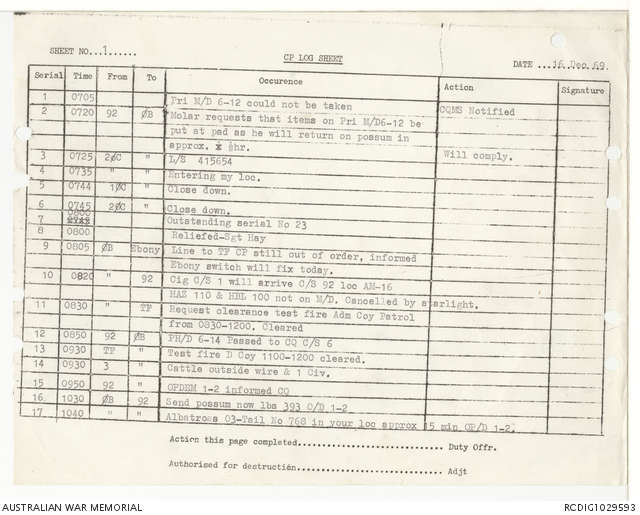 SHEET NO...1......
CP LOG SHEET
DATE ...16 Dec 69.
Serial Time From To Occurence Action Signature
1 0705 Pri M/D 6-12 could not be taken CQMS Notified
2 0720 92 ØB Molar requests that items on Pri M/D6-12 be
put at pad as he will return on possum in
approx. ½hr.
3 0725 2ØC " L/S 415654 Will comply.
4 0735 " " Entering my loc.
5 0744 1ØC " Close down.
6 0745 2ØC " Close down.
7 0800 Outstanding serial No 23
8 0800 Reliefed-Sgt Hay
9 0805 ØB Ebony Line to TF CP still out of order, informed
Ebony switch will fix today.
10 0820 " 92 Cig C/S 1 will arrive C/S 92 loc AM-16
HAZ 110 & HBL 100 not on M/D. Cancelled by starlight.
11 0830 " TF Request clearance test fire Adm Coy Patrol
from 0830-1200. Cleared
12 0850 92 ØB PH/D 6-14 Passed to CQ C/S 6
13 0930 TF " Test fire D Coy 1100-1200 cleared.
14 0930 3 " Cattle outside wire & 1 Civ.
15 0950 92 " OPDEM 1-2 informed CQ
16 1030 ØB 92 Send possum now lbs 393 O/D 1-2
17. 1040 " " Albatross 03-Tail No 768 in your loc approx 15 min OP/D 1-2.
Action this page completed............................. Duty Offr.
Authorised for destruction............................. Adjt
AUSTRALIAN WAR MEMORIAL
RCDIG1029593